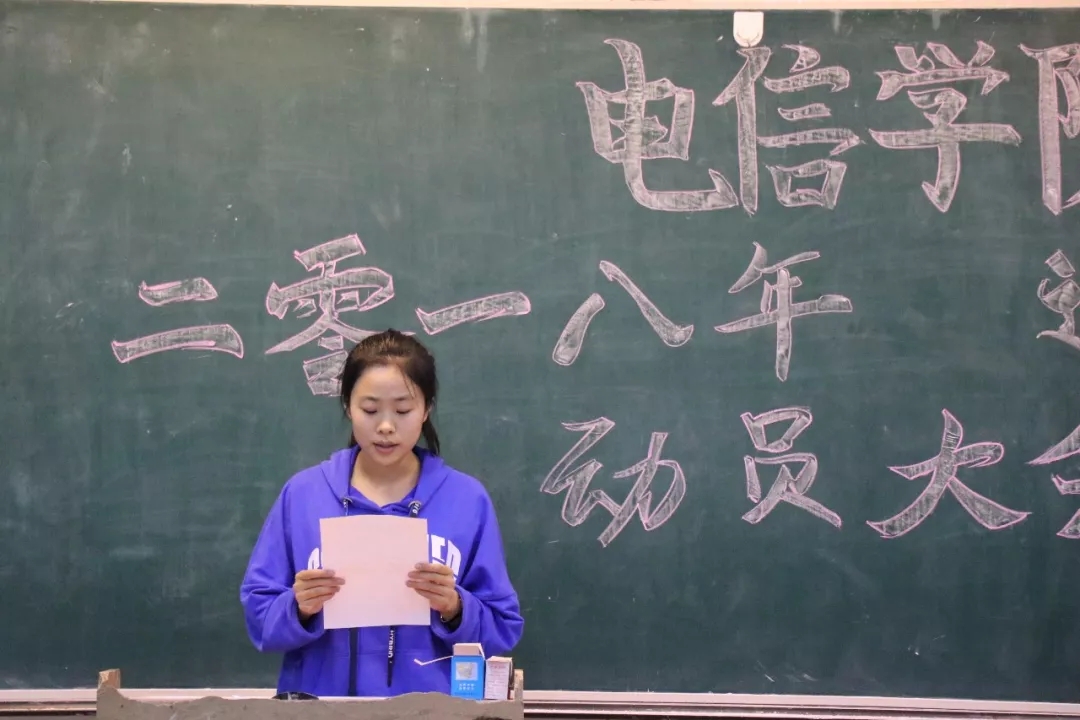 电信学院
二零一八年
动员大会